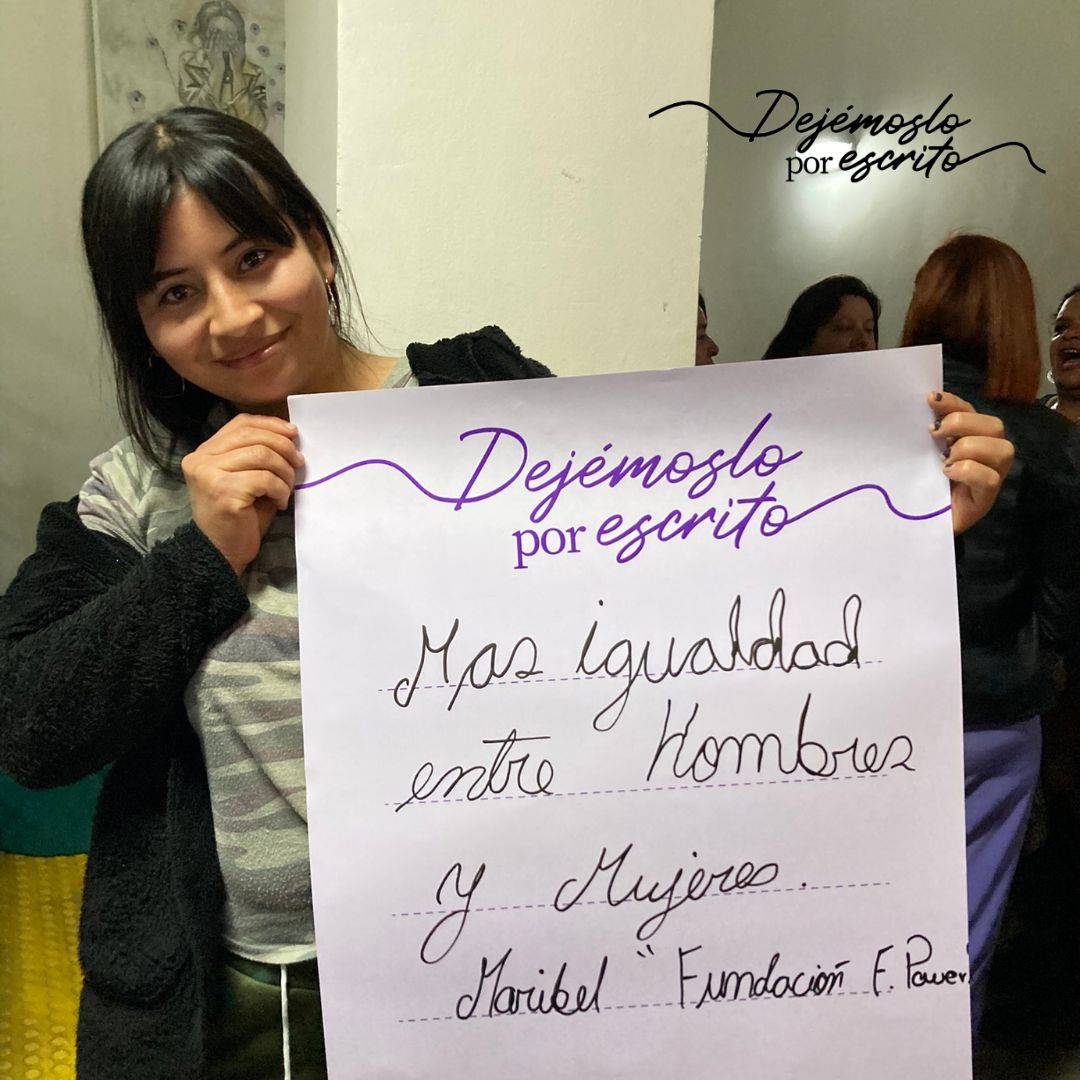 Dejémoslo
por escrito
Dejémoslo
por escrito
Mas igualdad
entre Hombres
y Mujeres.
Maribel " Fundación F. Power